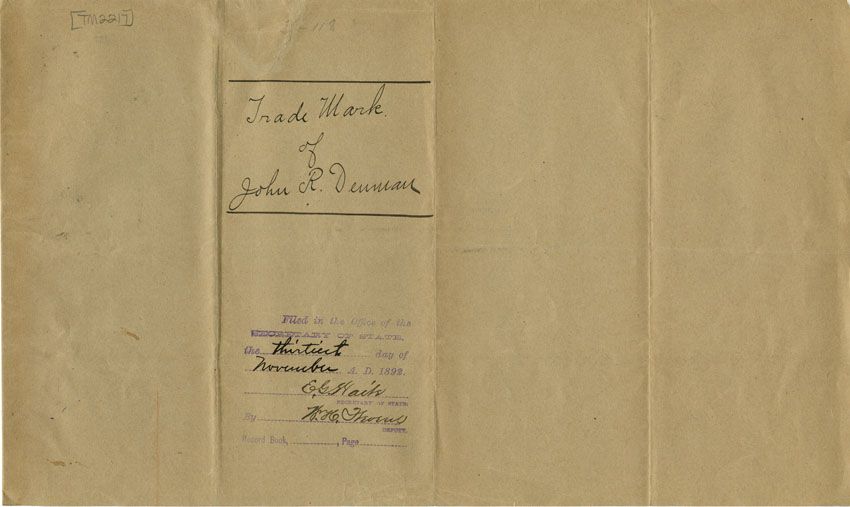 [TM2217]
118
Trade Mark.
of
John R. Denman
Filed in the Office of the
SECRETARY OF STATE,
the thirtieth day of
November A. D. 1892.
E.G. Waite
SECRETARY OF STATE.
By W. H.
DEPUTY.
Record Book, , Page